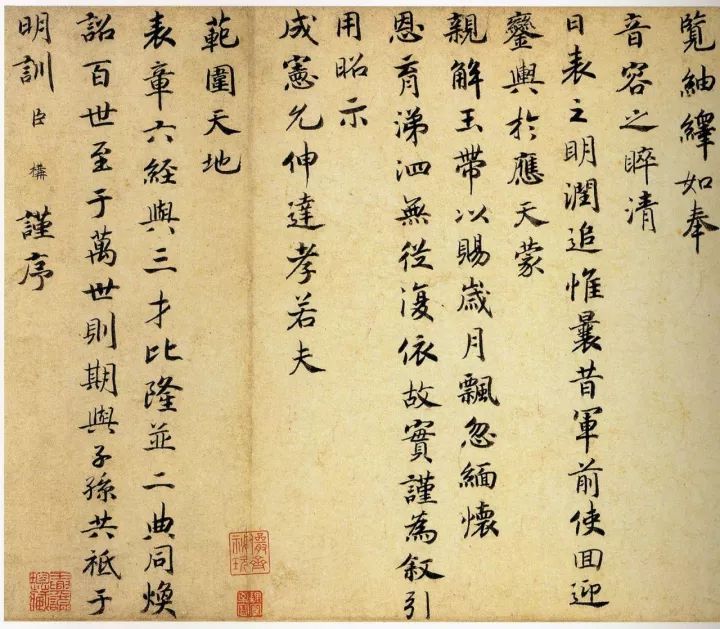 覽紬繹如奉
音容之睟清
日表之明潤追惟曩昔軍前使回迎
鑾輿於應天蒙
親解玉帶以賜歲月飄忽緬懷
恩育涕泗無從復依故實謹為叙引
用昭示
成憲允伸達孝若夫
範圍天地
表章六經與三才比隆並二典同煥
詔百世至于萬世則期與子孫共祗于
明訓臣構謹序